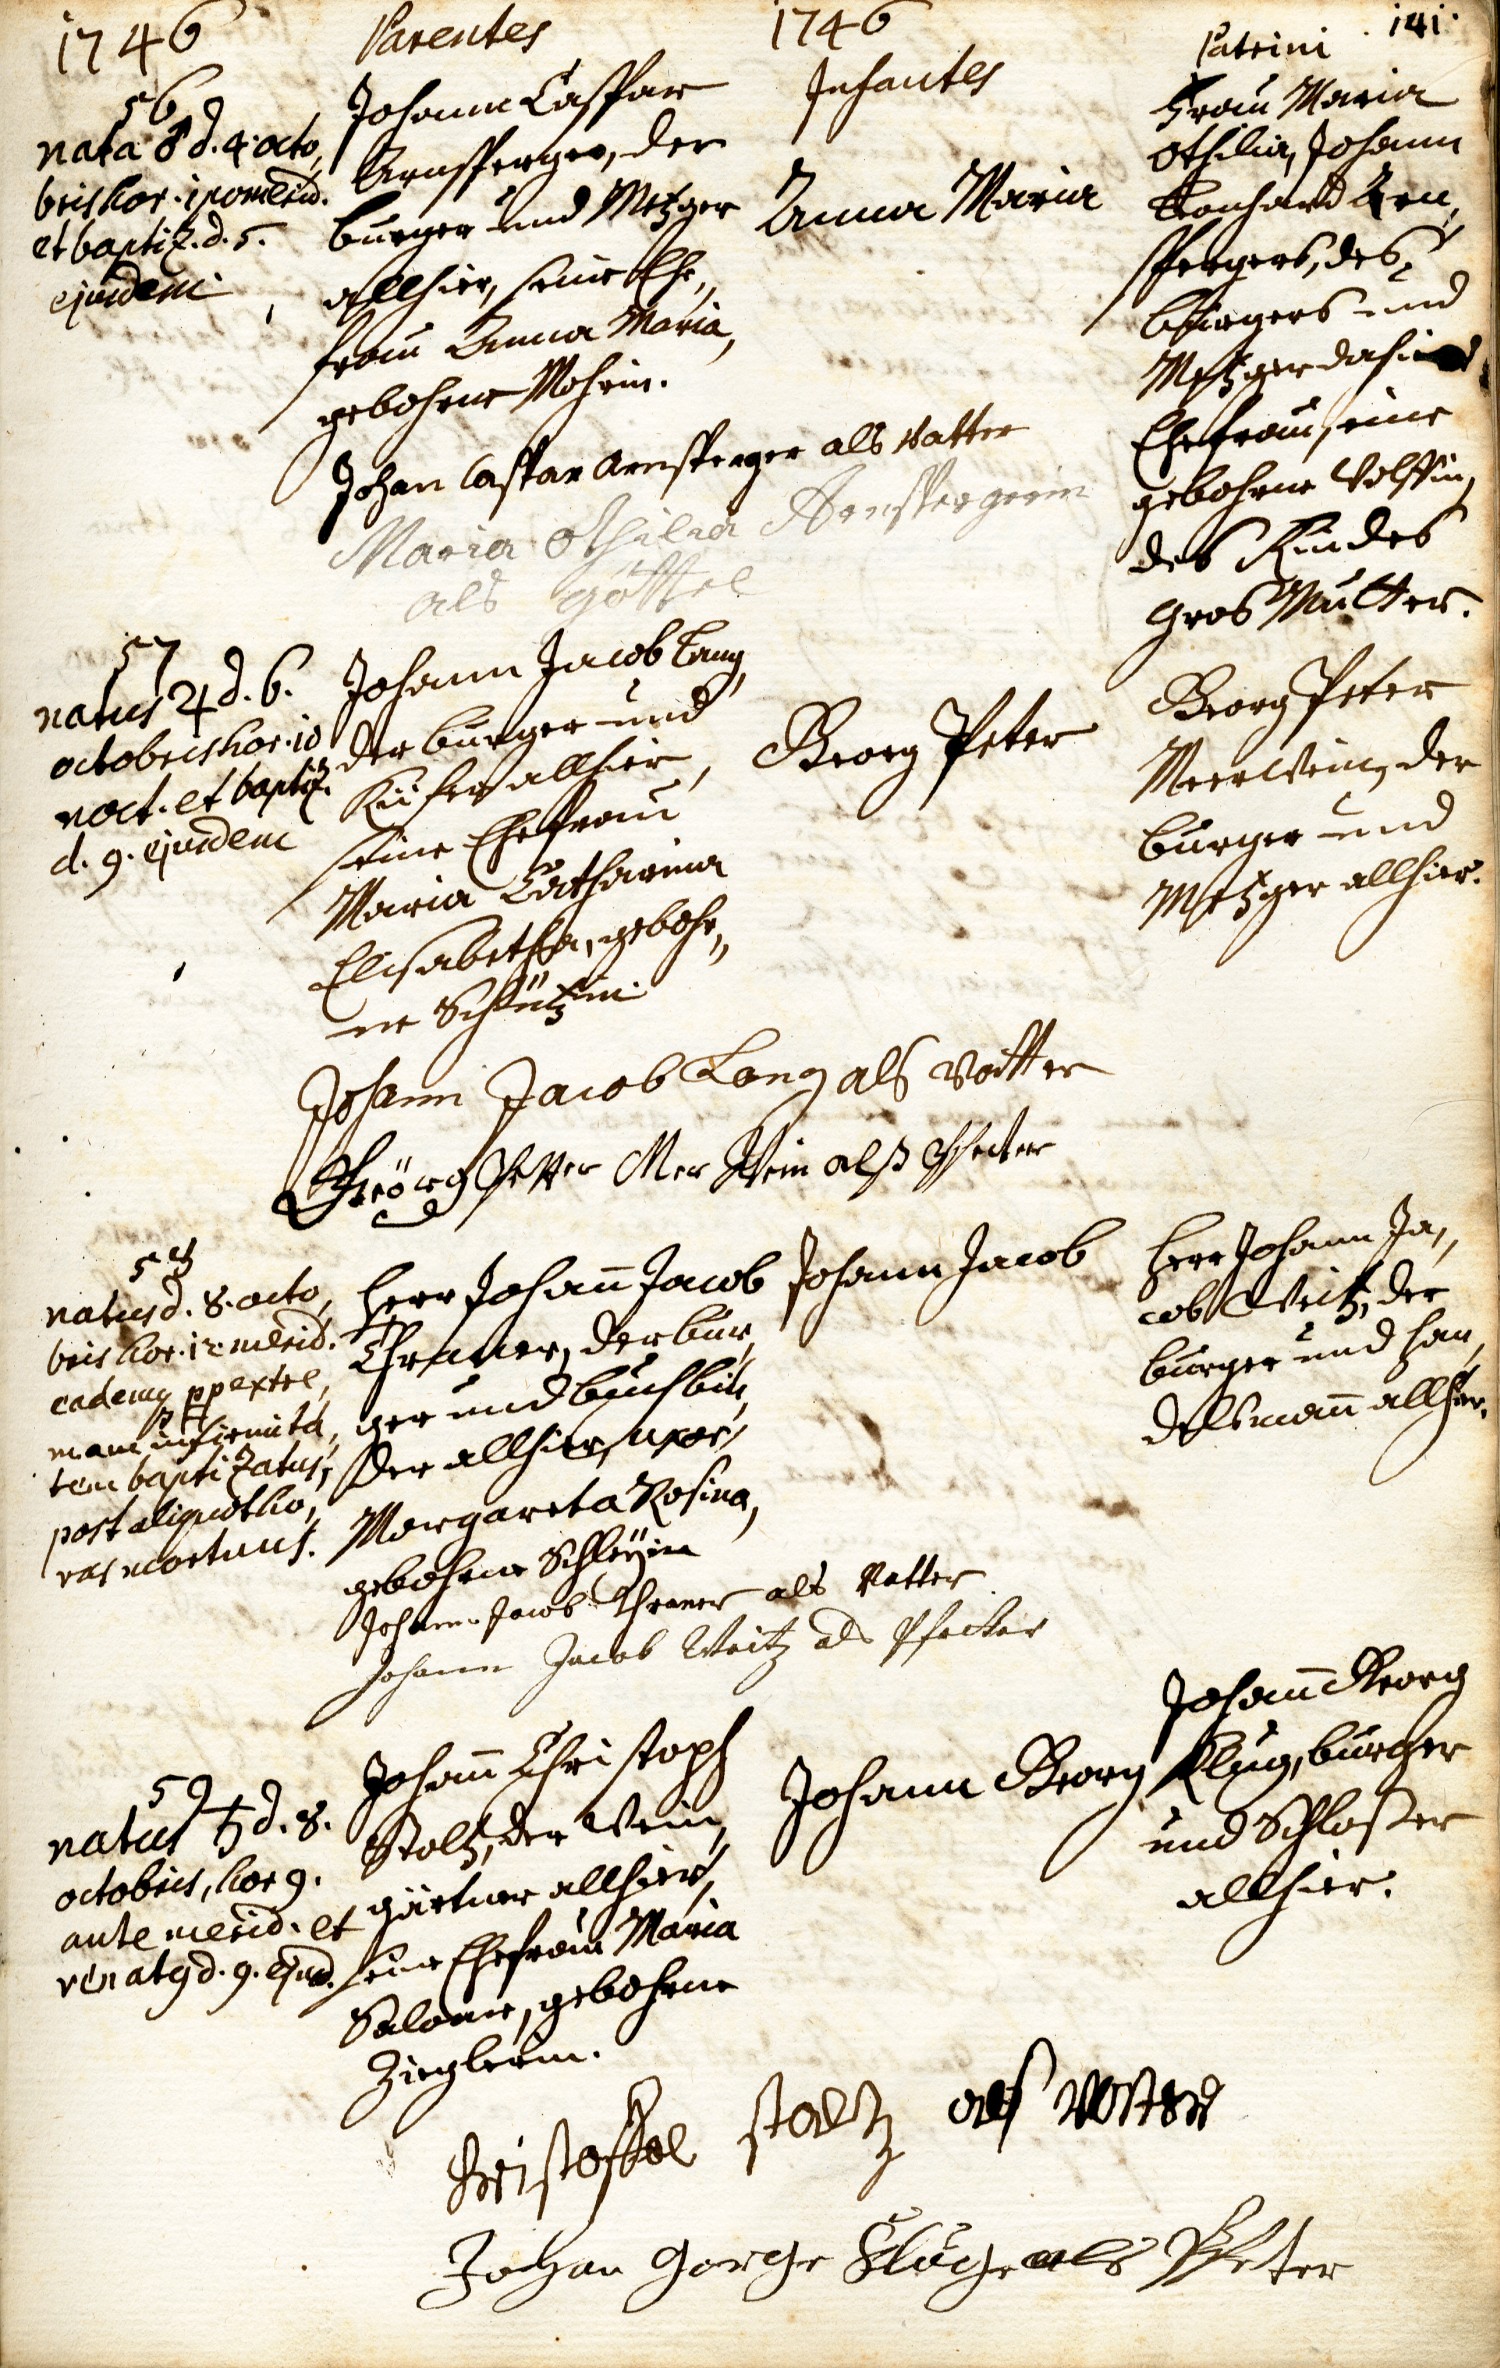 141.
1746 Parentes 1746 Infantes Patrini
56
nata ♂ d. 4. octo„
bris hor. 1 pomerid.
et baptiz. d. 5.
ejusdem
Johann Caspar
Arnsperger, der
burger und Metzger
allhier, seine Ehe„
frau Anna Maria,
gebohrne Mohrin.
Anna Maria
Frau Maria
Othilia, Johann
Leonhard Arn„
spergers, des
burgers und
Metzger dahier
Ehefrau, eine
gebohrne Volzin,
des Kindes
Gros Mutter.
Johan Caspar Arnsperger als Vatter
Maria Othilia Arnspergerin
als göttel
57
natus ♃ d. 6.
octobris hor. 10
noct. et baptiz.
d. 9. ejusdem
Johann Jacob Lang,
der burger und
Küfer allhier,
seine Ehefrau
Maria Catharina
Elisabetha, gebohr„
ne Schützin.
Georg Peter
Georg Peter
Meerwein, der
burger und
Metzger allhier.
Johann Jacob Lang als Vatter
Geörg Petter Mer Wein alß Pfetter
58
natus d. 8. octo„
bris hor. 12 merid.
eadem ppextre„
mam infirmita„
tem baptizatus,
post aliquot ho„
ras mortuus.
Herr Johañ Jacob
Thraner, der bur„
ger und buchbin„
der allhier, uxor,
Margareta Rosina,
gebohrne Schleyin
Johann Jacob
Herr Johann Ja„
cob Weitz, der
burger und han„
delsmañ allhier.
Johann Jacob Thraner als Vatter
Johann Jacob Weitz als Pfetter
59
natus ♄ d. 8.
octobris, hor 9.
ante merid. et
renatq d. 9. ejusd.
Johañ Christoph
Stoltz, der Wein„
gärtner allhier,
seine Ehefrau Maria
Salome, gebohrne
Zieglerin.
Johann Georg
Johañ Georg
Klug, burger
und Schloßer
allhier.
Kristoffel stoltz als Vatter
Johan Gorge Kluge als Pfetter